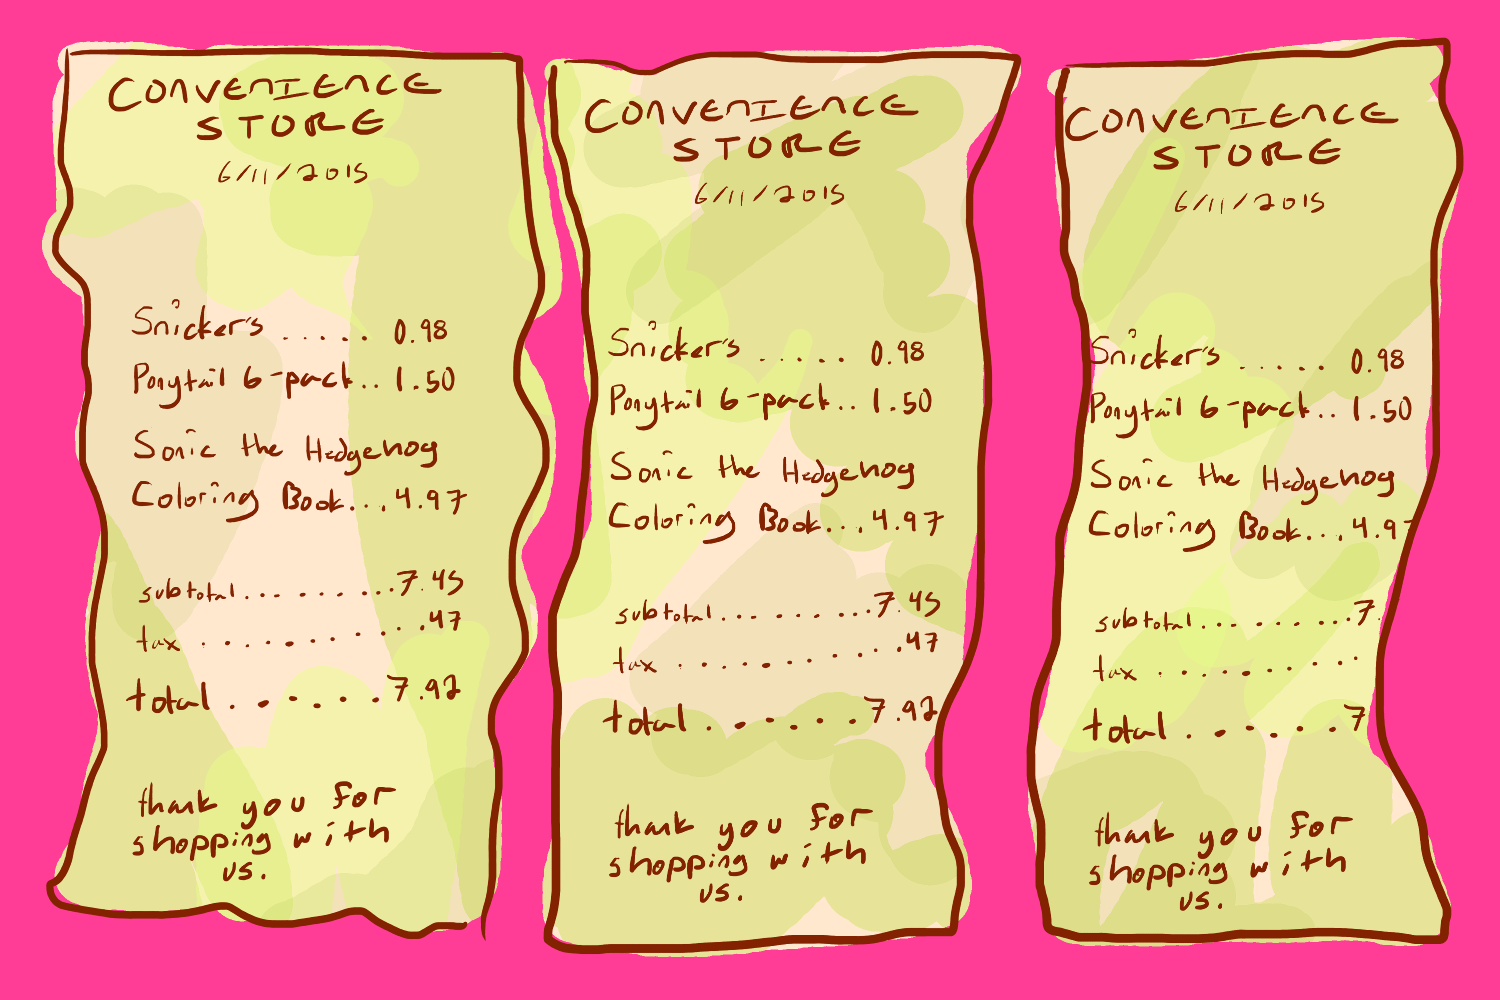 CONVENIENCE
STORE
6/11/2015
Snicker's ..... 0.98
Ponytail 6-pack.. 1.50
Sonic the Hedgehog
Coloring Book... 4.97
subtotal...........7.45
tax ...........47
total ......7.92
thank you for
shopping with
us.
CONVENIENCE
STORE
6/11/2015
Snicker's ..... 0.98
Ponytail 6-pack.. 1.50
Sonic the Hedgehog
Coloring Book... 4.97
subtotal...........7.45
tax ...........47
total ......7.92
thank you for
shopping with
us.
CONVENIENCE
STORE
6/11/2015
Snicker's ..... 0.98
Ponytail 6-pack.. 1.50
Sonic the Hedgehog
Coloring Book... 4.97
subtotal...........7.
tax ..........
total ......7
thank you for
shopping with
us.